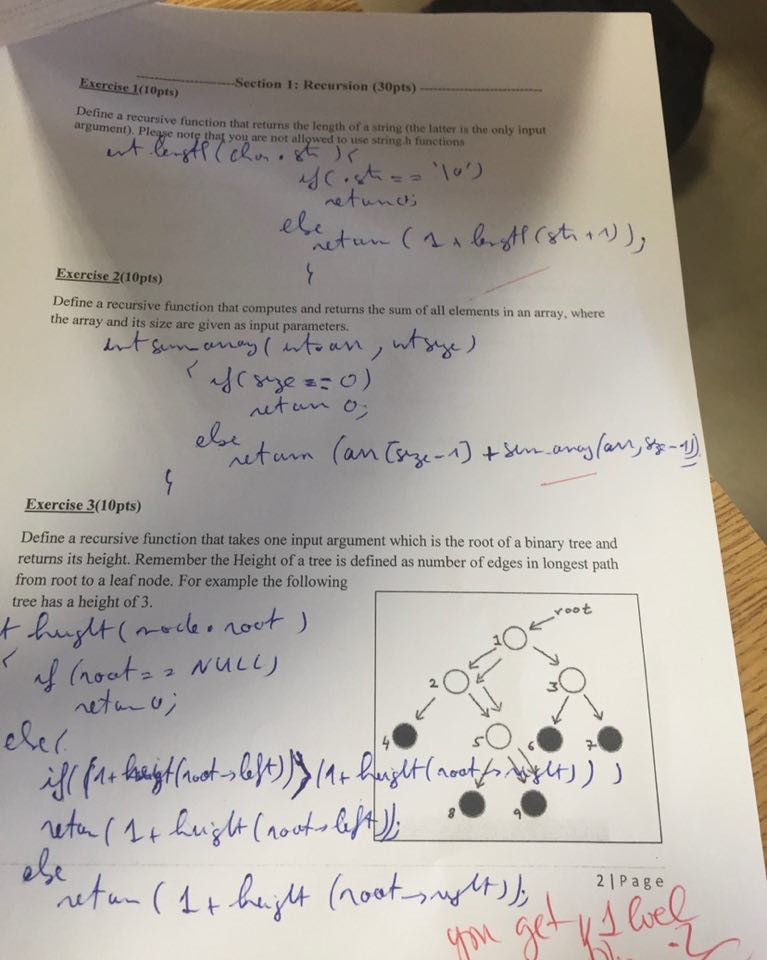 Section 1: Recursion (30pts)
Exercise 1(10pts)
Define a recursive function that returns the length of a string (the latter is the only input
argument). Please note that you are not allowed to use string.h functions
int length (char * str) {
if (*str == '\0')
return 0;
else
return (1 + length (str + 1));
}
Exercise 2(10pts)
Define a recursive function that computes and returns the sum of all elements in an array, where
the array and its size are given as input parameters.
int sum_array (int * arr, int size)
{ if (size == 0)
return 0;
else
return (arr [size-1] + sum_array(arr, size-1))
}
Exercise 3(10pts)
Define a recursive function that takes one input argument which is the root of a binary tree and
returns its height. Remember the Height of a tree is defined as number of edges in longest path
from root to a leaf node. For example the following
tree has a height of 3.
root
1
2 3
4 5 6 7
8 9
t height (node * root)
{ if (root == NULL)
return 0;
else {
if ((1 + height (root->left)) > (1 + height (root->right)))
return (1 + height (root->left));
else
return (1 + height (root->right));
2 | Page
you get 1 level
-2